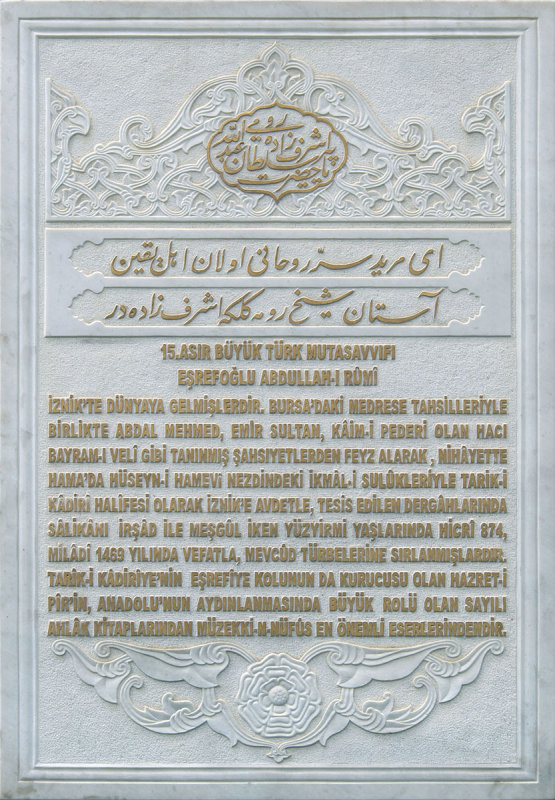 یا حضرت پیر سلطان عبدالله اشرف زاده رومی
ای مرید سرّ روحانی اولان اهل یقین
آستان شیخ رومه كل كه اشرف زاده در
15.ASIR BÜYÜK TÜRK MUTASAVVIFI
EŞREFOĞLU ABDULLAH-I RÛMİ
İZNİK'TE DÜNYAYA GELMİŞLERDİR. BURSA'DAKİ MEDRESE TAHSİLLERİYLE
BİRLİKTE ABDAL MEHMED, EMİR SULTAN, KÂİM-İ PEDERİ OLAN HACI
BAYRAM-I VELİ GİBİ TANINMIŞ ŞAHSİYETLERDEN FEYZ ALARAK , NİHÂYETTE
HAMA'DA HÜSEYN-İ HAMEVİ NEZDİNDEKİ İKMÂL-İ SULÛKLERİYLE TARİK-İ
KÂDİRİ HALİFESİ OLARAK İZNİK'E AVDETLE, TESİS EDİLEN DERGÂHLARINDA
SÂLİKÂNI İRŞÂD İLE MEŞGÛL İKEN YÜZYİRMİ YAŞLARINDA HİCRİ 874,
MİLÂDİ 1469 YILINDA VEFATLA, MEVCÛD TÜRBELERİNE SIRLANMIŞLARDIR.
TARİK-İ KÂDİRİYE'NİN EŞREFİYE KOLUNUN DA KURUCUSU OLAN HAZRET-İ
PİR'İN, ANADOLU'NUN AYDINLANMASINDA BÜYÜK ROLÜ OLAN SAYILI
AHLÂK KİTAPLARINDAN MÜZEKKİ-N-NÜFÛS EN ÖNEMLİ ESERLERİNDENDİR.